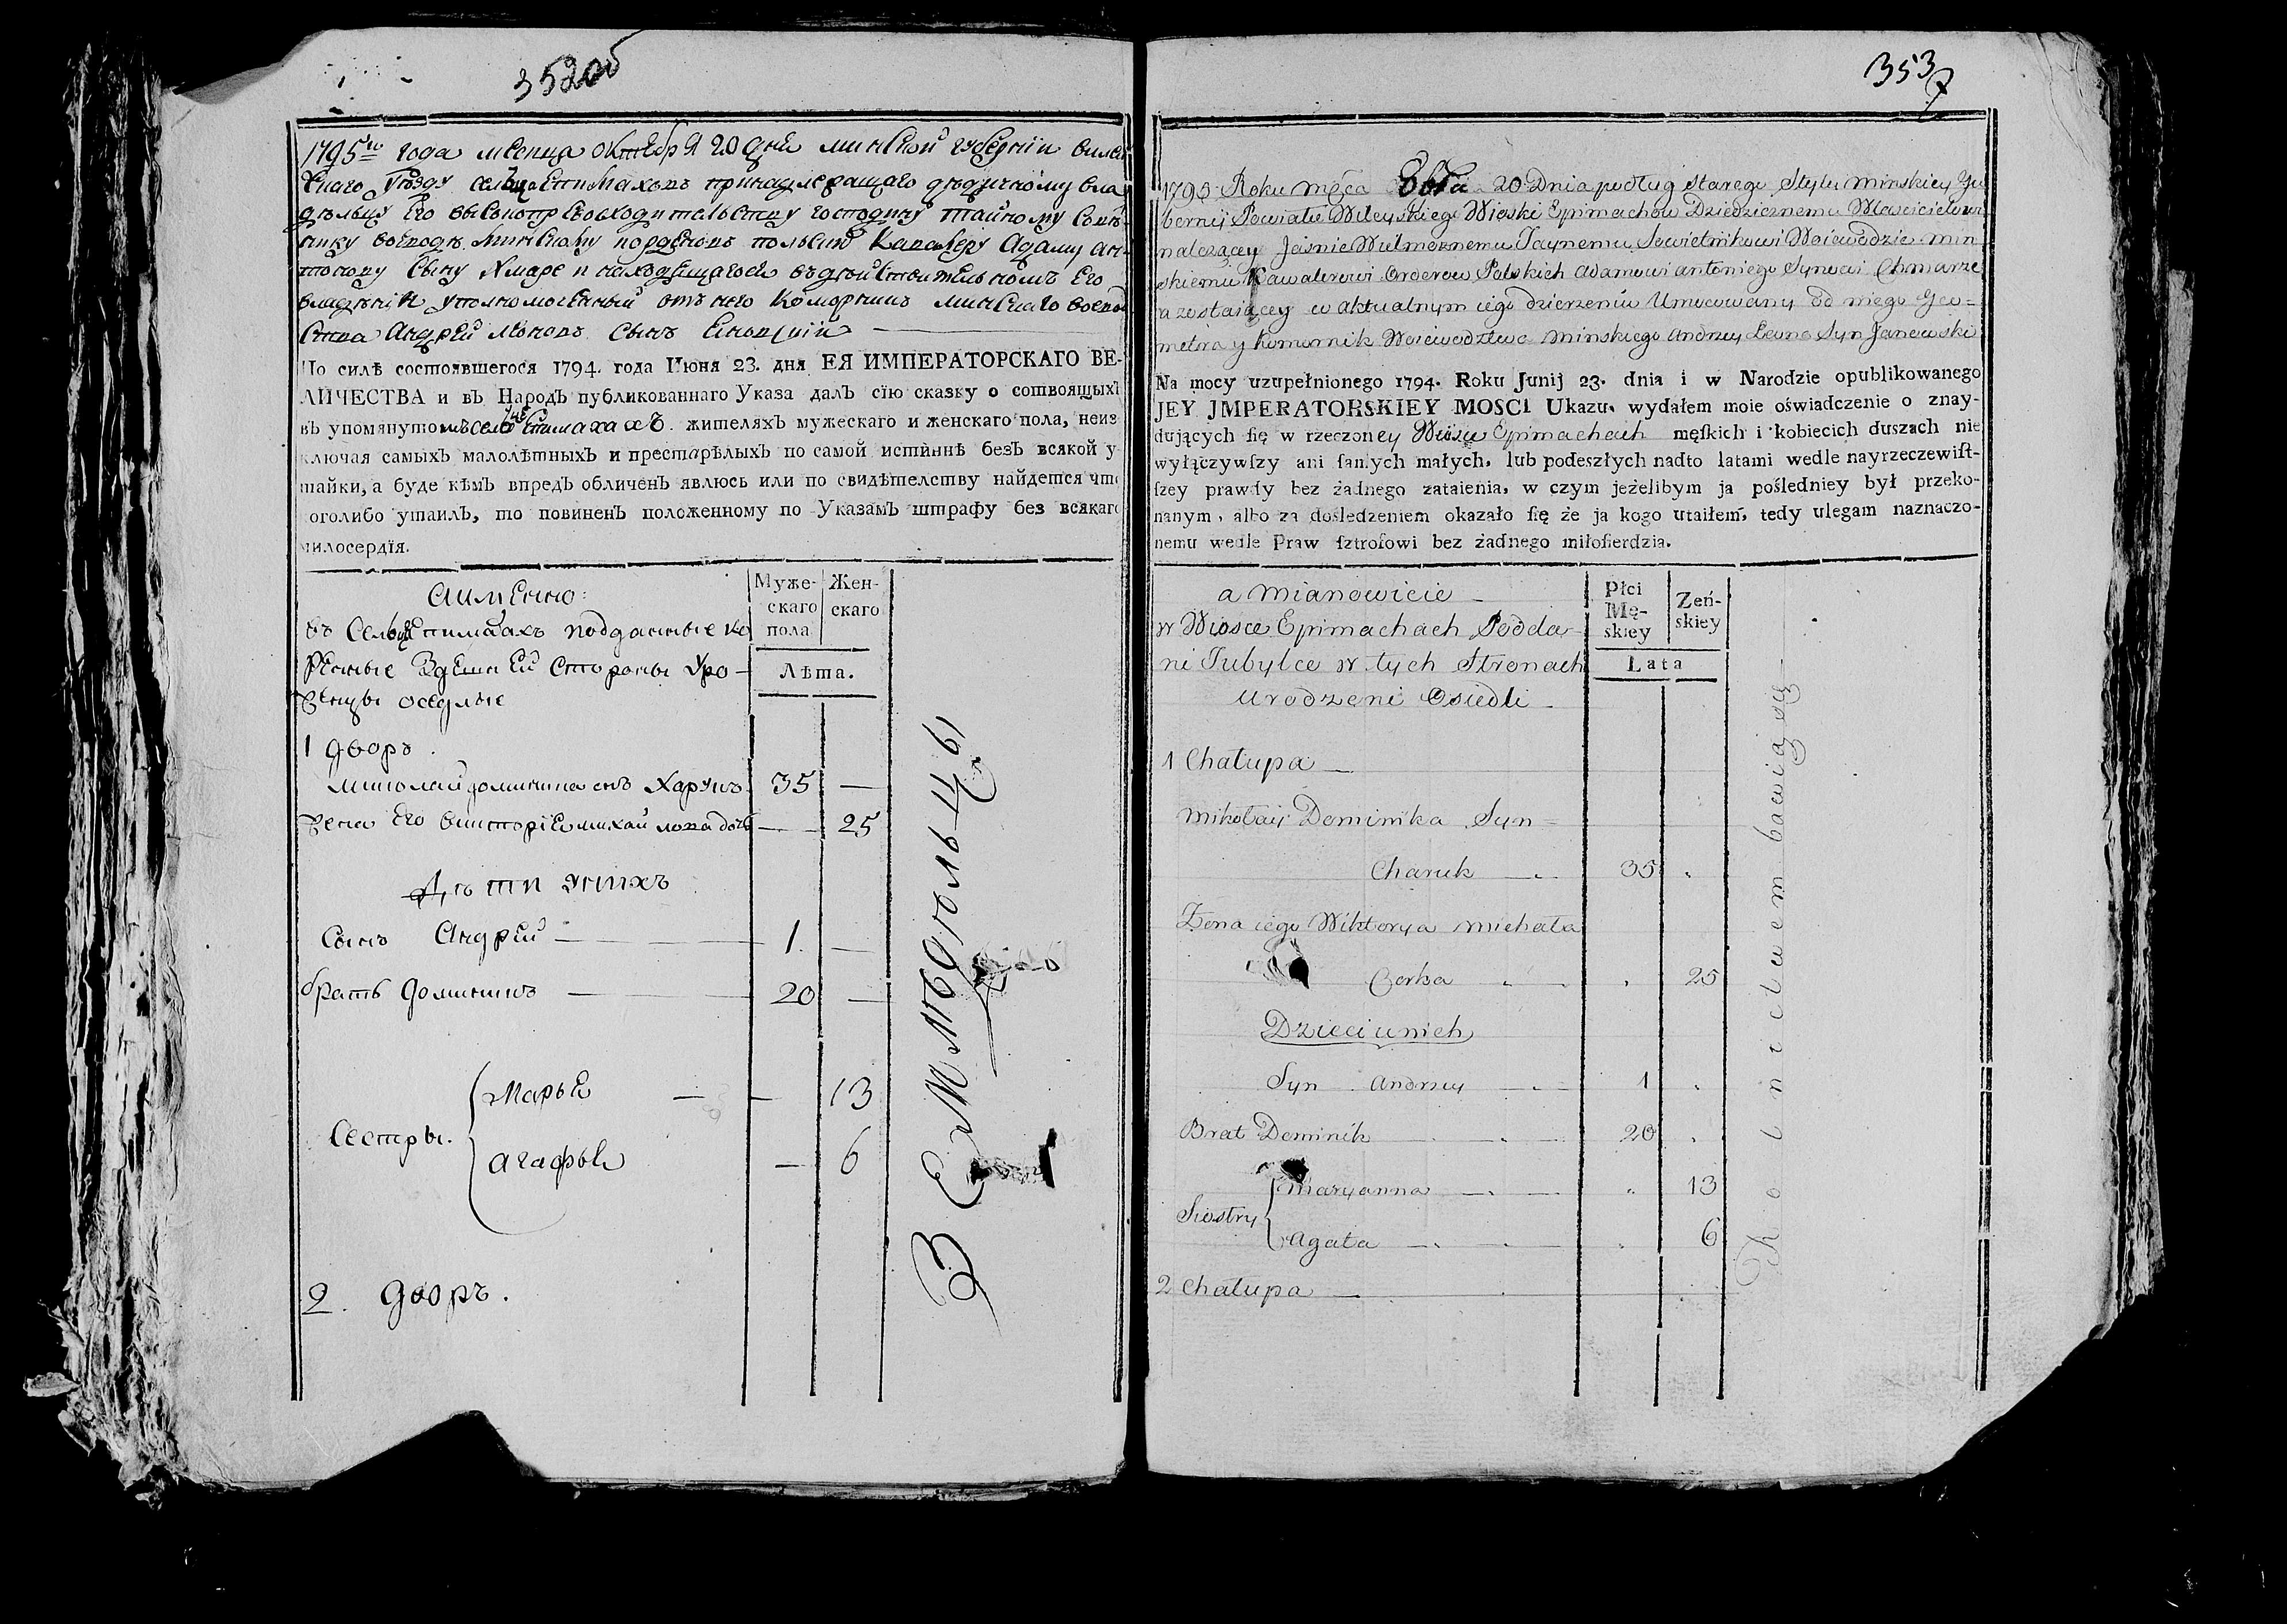 352об
1795го года месеца октебря 20 дня минской губернии вилей
скаго уѣзду сельца Епимаховъ принадлежащаго дѣдичному вла
дѣльцу Его высокопревосходительству господину тайному совѣт
нику воеводѣ минскому и орденовъ польскихъ Кавалеру Адаму Ан-
тонову сыну Хмаре и находящагося въ дѣйствительномъ Его
владѣнии уполномоченный отъ него коморникъ минскаго воевод
ства Андрей Леоновъ сынъ Еновский
По силѣ состоявшегося 1794. года Iюня 23. дня ЕЯ ИМПЕРАТОРСКАГО ВЕ-
ЛИЧЕСТВА и въ Народъ публикованнаго Указа далъ сїю сказку о состоящыхъ
въ упомянутомъ сельце Епимахахъ. жителяхъ мужескаго и женскаго пола, неиз
ключая самыхъ малолѣтныхъ и престарѣлыхъ по самой истиннѣ безъ всякой у
тайки, а буде кѣмъ впредъ обличенъ явлюсь или по свидѣтелству найдется что
коголибо утаилъ, то повиненъ положенному по Указамъ штрафу без всякаго
милосердїя.
аимЕнно:
Муже-
скаго
пола
Жен-
скаго
въ Сельце Епимахахъ подданные ко
ренные здешней стороны уро-
женцы оседлые
Лѣта.
1 дворъ.
миколай доминика снъ харукъ 35 —
жена Его викторие михайлова дочь — 25
Дѣти у нихъ
Сынъ Андрей — 1. —
братъ доминикъ — 20 —
Сестры.
Марья — — 13
агафья — 6
2. дворъ.
З Е Млѣдѣль Ц Ы
353
7
1795 Roku męca 8bra 20 Dnia podług starego Stylu Minskiey Gu
bernij Powiatu Wileyskiego Wioski Epimachow Dziedzicznemu Włascicielowi
nalezącey Jaśnie Wielmoznemu Taynemu Sowietnikowi Woiewodzie Min
skiemu Kawalerowi Orderow Polskich Adamowi Antoniego Synowi Chmarze
a zostaiącey w aktualnym iego dzierzeniu Umocowany od niego Geo=
metra y komornik Woiewodztwa Minskiego Andrzey Leona Syn Janowski
Na mocy uzupełnionego 1794. Roku Junij 23. dnia i w Narodzie opublikowanego
JEY JMPERATORSKIEY MOSCI Ukazu, wydałem moie oświadczenie o znay-
dujących ſię w rzeczoney Wiosce Epimachach męſkich i kobiecich duszach nie
wyłączywſzy ani ſamych małych, lub podeszłych nadto latami wedle nayrzeczewiſt-
ſzey prawdy bez żadnego zataienia, w czym jeżelibym ja poſledniey był przeko-
nanym, albo za doſledzeniem okazało ſię że ja kogo utaiłem, tedy ulegam naznaczo-
nemu wedle Praw ſztrofowi bez żadnego miłoſierdzia.
a mianowicie
Płci
Mę-
skiey
Zeń-
skiey
w Wiosce Epimachach Podda-
ni Tubylce w tych Stronach
Urodzeni Osiedli
Lata
1 Chałupa
Mikołay Dominika Syn
Charuk 35
Zona iego Wiktorya Michała
Corka 25
Dzieci u nich
Syn Andrzey 1
Brat Dominik 20
Siostry
Maryanna 13
Agata 6
2 Chałupa
Rolnictwem bawią się